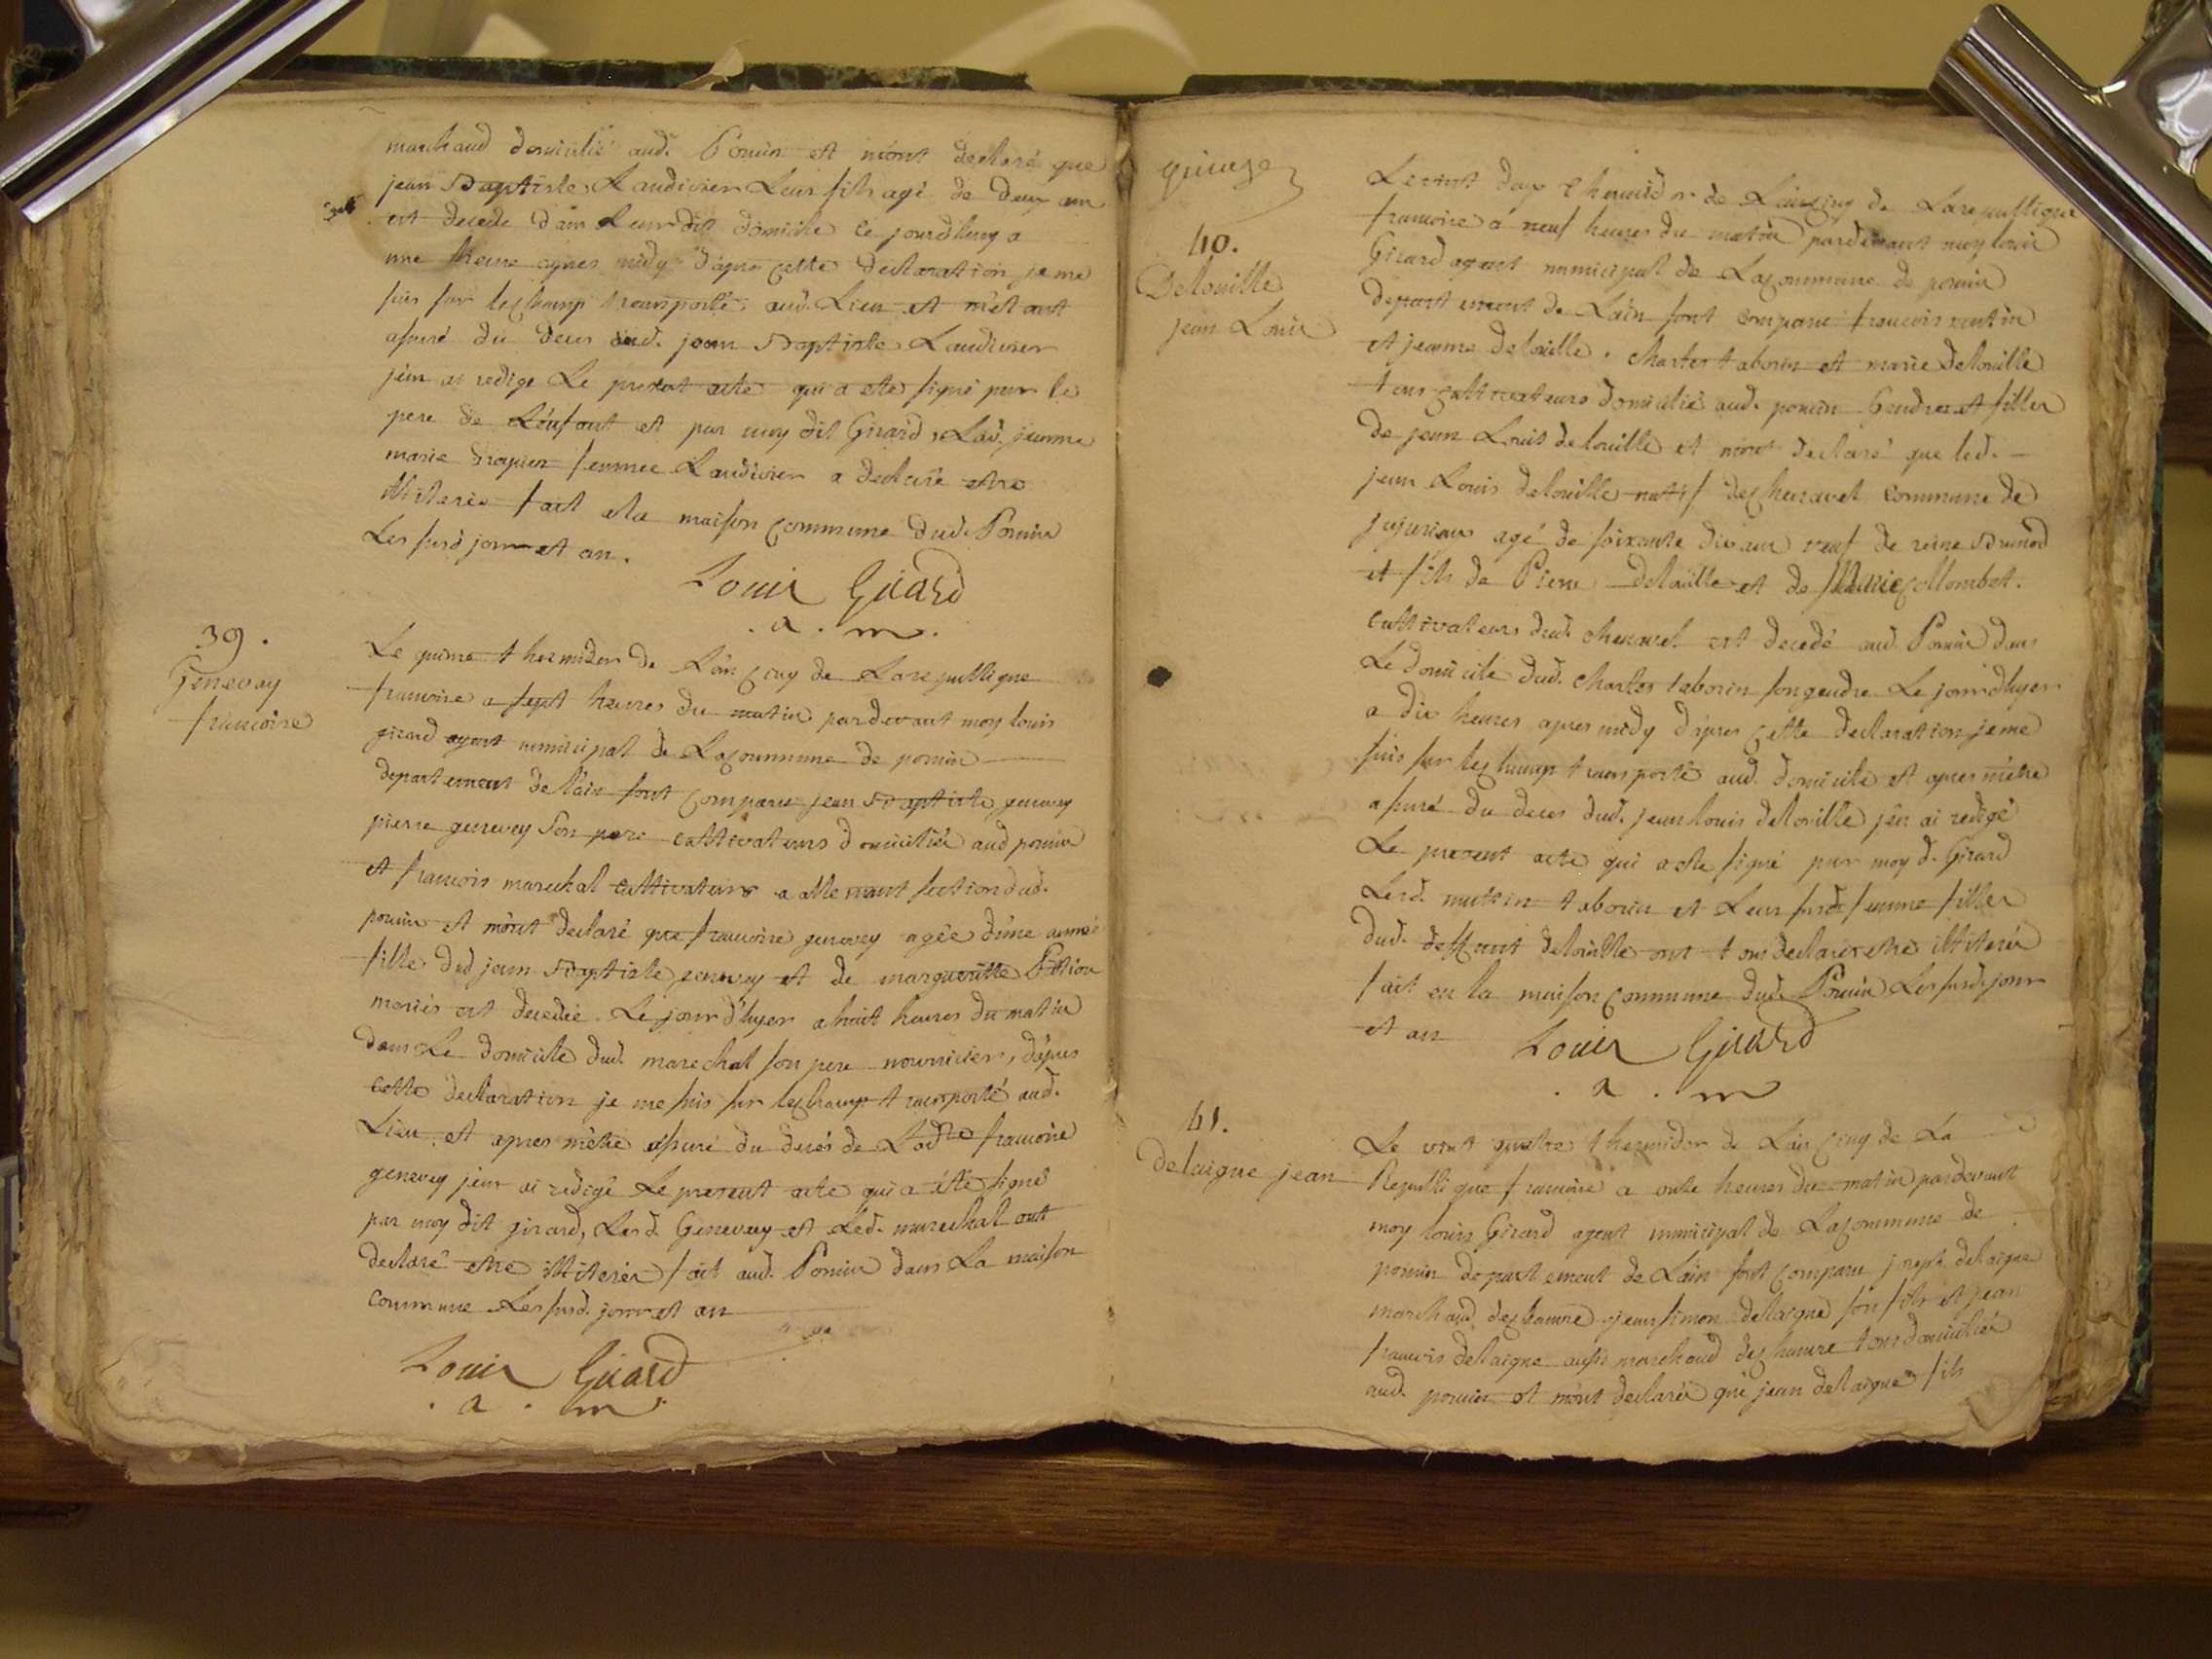 marchand domicilié aud. Poncin et mont declaré que
jean Baptiste Laudivier Leur fils agé de deux ans
est decedé dans Leur dit domicile ce jourdhuy a
une heure apres midy d'apres cette declaration je me
suis sur lechamp transporté aud. Lieu et m'etant
assuré du deces dud. jean Baptiste Laudivier
j'en ai redigé Le present acte qui a eté signé par le
pere de L'enfant et par moy dit Girard, Lad. jeanne
marie drapier femme Laudivier a declaré etre
illiterée fait ala maison commune dud. Poncin
Les susd jour et an.
Louis Girard
. a . m .
39.
Genevay
francoise
Le quinze thermidor de L'an cinq de Larepublique
francoise a sept heures du matin pardevant moy louis
girard agent municipal de Lacommune de poncin
departement de l'ain sont comparu jean Baptiste genevey
pierre genevey son pere cultivateurs domiciliés aud poncin
et francois marechal cultivateurs a allement section dud.
poncin et m'ont declaré que francoise genevey agée d'une année
fille dud jean Baptiste genevey et de margueritte
mariés est decedée Le jour d'hyer a huit heures du matin
dans Le domicile dud. marechal son pere nourricier, d'apres
cette declaration je me suis sur lechamp transporté aud.
Lieu et apres m'etre assuré du decés de Ladte francoise
genevey j'en ai redigé Le present acte qui a été signé
par moy dit girard, Lesd. Genevey et Led. marechal ont
declaré etre illiterés fait aud. Poncin dans La maison
commune Les susd. jour et an
Louis Girard
. a . m .
quinze
40.
Delouille
jean Louis
Le vint deux thermidor de L'an cinq de Larepublique
francoise a neuf heures du matin pardevant moy louis
Girard agent municipal de Lacommune de poncin
departement de Lain sont comparu francois mutin
et jeanne delouille, charles taborin et marie delouille
tous cultivateurs domicilié aud. poncin Gendres et filles
de jean Louis delouille et mont declaré que led.
jean Louis delouille natif dechenavel commune de
jujurieux agé de soixante dix ans veuf de reine Brunod
et fils de Pierre delouille et de Marie collombet.
cultivateurs dud. chenavel est decedé aud. Poncin dans
Le domicile dud. charles taborin son gendre Le jourdhyer
a dix heures apres midy d'apres cette declaration je me
suis sur lechamp transporté aud. domicile et apres m'etre
assuré du deces dud. jean louis delouille j'en ai redigé
Le present acte qui a eté signé par moy d. Girard
Lesd. mutin taborin et Leur susd. femme filles
dud. deffunt delouille ont tous declarés etre illiterés
fait en la maison commune dud. Poncin Les susd. jour
et an
Louis Girard
. a . m
41.
delaigue jean
Le vint quatre thermidor de Lan cinq de La
Republique francoise a onze heures du matin pardevant
moy louis Girard agent municipal de Lacommune de
poncin departement de Lain sont comparu joseph delaigue
marchand dechanvre jean simon delaigue son fils et jean
francois delaigue aussi marchand dechanvre tous domiciliés
aud. poncin et mont declarés que jean delaigue fils